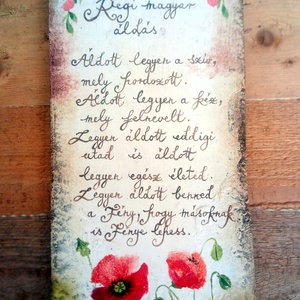 Régi magyar
áldás
Áldott legyen a szív,
mely hordozott.
Áldott legyen a kéz,
mely felnevelt.
Legyen áldott eddigi
utad is áldott
legyen egész életed.
Legyen áldott benned
a Fény, hogy másoknak
is Fénye lehess.